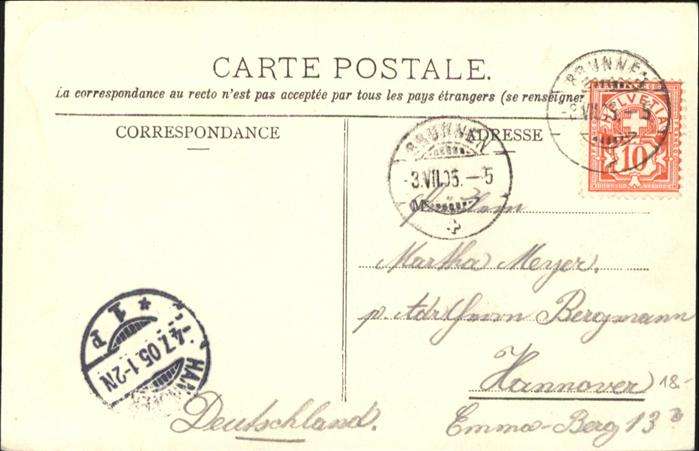 CARTE POSTALE.
La correspondance au recto n'est pas acceptée par tous les pays étrangers (se renseigner
CORRESPONDANCE
ADRESSE
BRUNNEN
-3.VII.05.-5
BRUNNEN
VII.05.-5
HELVETIA
10
Martha Meyer.
p. Adr. Bergmann
Hannover 18-
Emma-Berg 13
Deutschland.
HAN
-4.7.05.1-2N
* 1 P